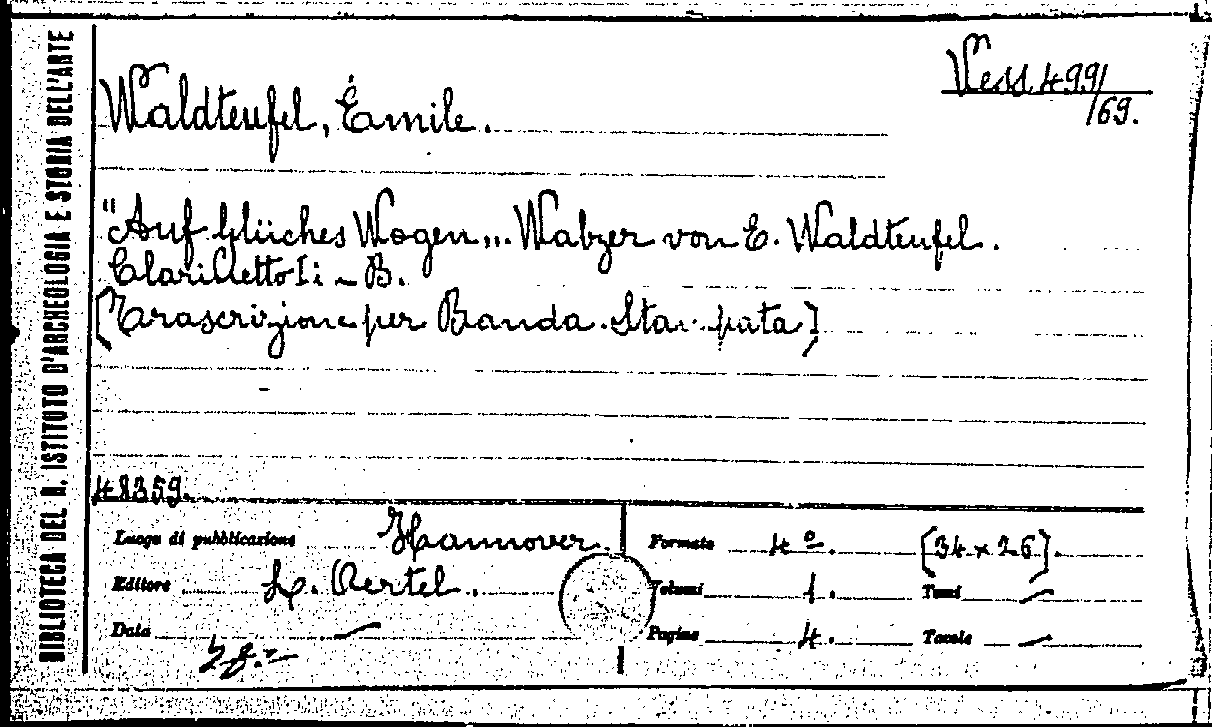 BIBLIOTECA DEL R. ISTITUTO D'ARCHEOLOGIA E STORIA DELL'ARTE
Vess. 499/
/69.
Waldteufel, Émile.
"Auf blüches Wogen„. Walzer von E. Waldteufel.
Clarinetto I i - B.
[Trascrizione per Banda. Stampata]
48359.
Luogo di pubblicazione Hannover.
Editore L. Oertel.
Data —
Formato 4º. [34 x 26].
Volumi 1. Tomi —
Pagine 4. Tavole —